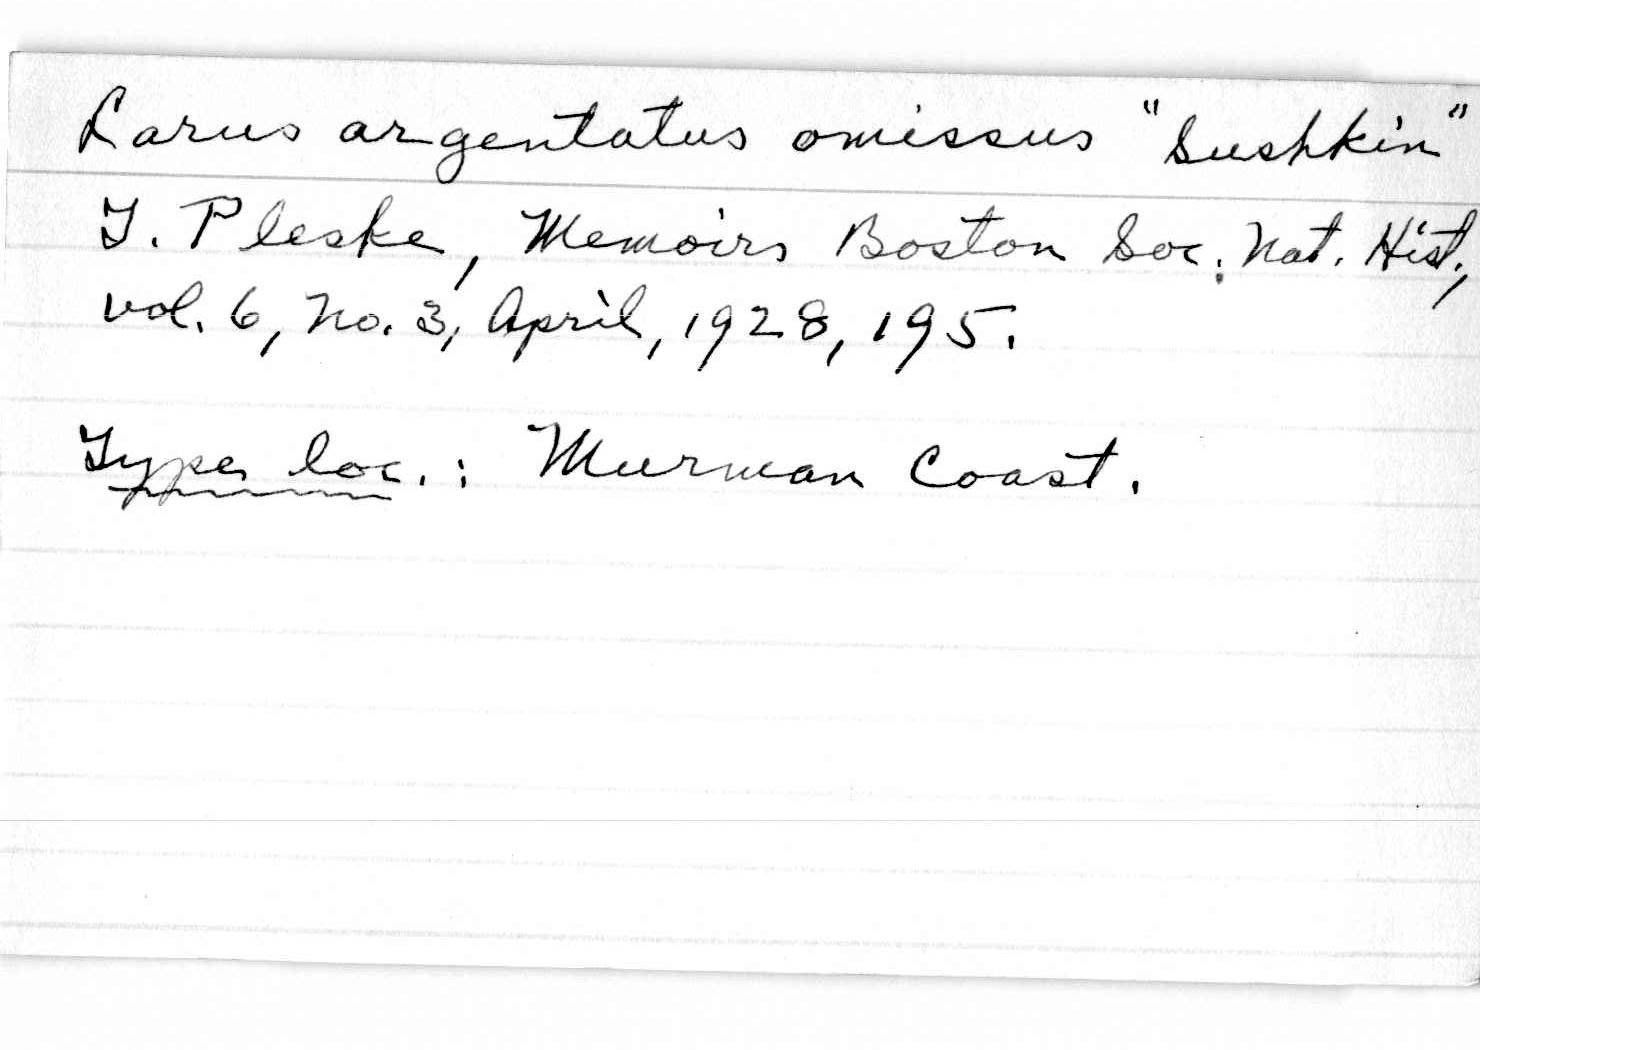 Larus argentatus omissus "Sushkin"
T. Pleske, Memoirs Boston Soc. Nat. Hist.,
vol. 6, no. 3, April, 1928, 195.
Type loc.: Murman Coast.